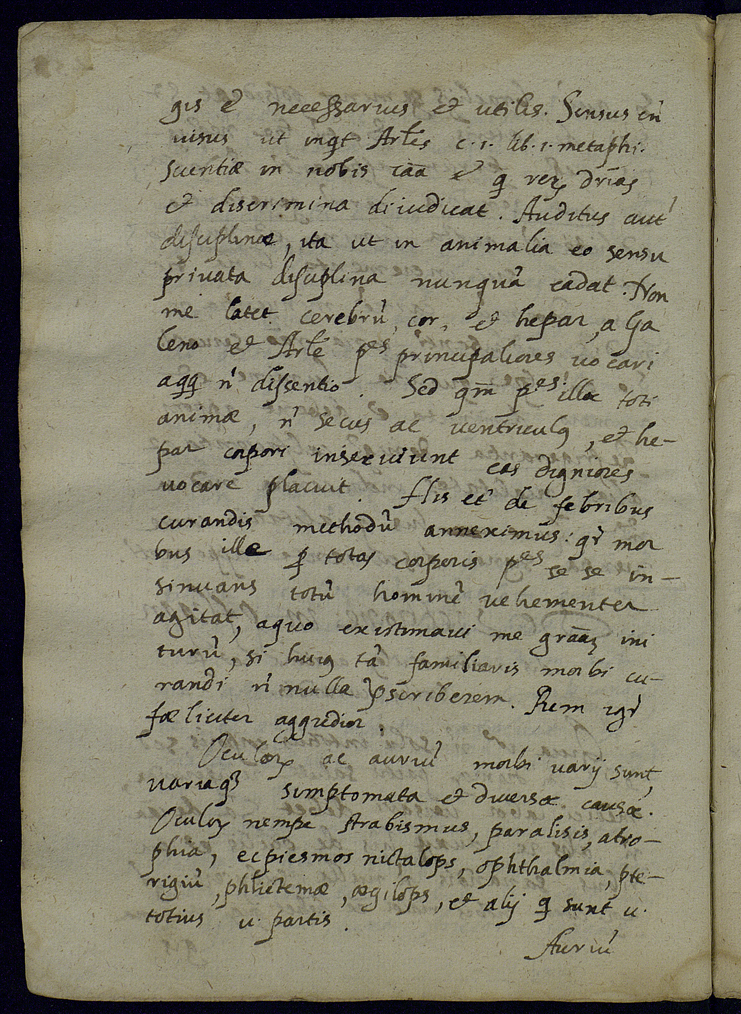 gis ē necessarius et utilis. Sensus en̄
visus ut inqt Arles c. 1. lib. 1. metaphi.
Scientiæ in nobis cāa ē q rerz drīas
et discrimina diiudicat. Auditus aut̄
disciplinæ, ita ut in animalia eo sensu
privata disciplina nunquā cadat. Non
me latet cerebrū, cor, et hepar, a Ga
leno et Arle pes principaliores vocari
aqq n̄ dissentio. Sed qm̄ pes illæ toti
animæ, n̄ secus ac ventriculq, et he-
par corpori inserviunt eas digniores
vocare placuit. His et̄ de febribus
curandis methodū anneximus: qr̄ mor
bus ille q totas corporis pes se se in-
sinuans totū hominē vehementer
agitat, aquo existimavi me grāaz ini
turū, si huiq tā familiaris morbi cu-
randi n̄ nulla pscriberem. Rem igr̄
fæliciter aggredior.
Oculorz ac auriū morbi varij sunt,
variaq3 simptomata et diversæ causæ.
Oculorz nempe strabismus, paralisis, atro-
phia, ecpiesmos nictalops, ophthalmia, pte-
rigiū, phlictemæ, ægilops, et alij q sunt u.
totius u. partis.
Auriū